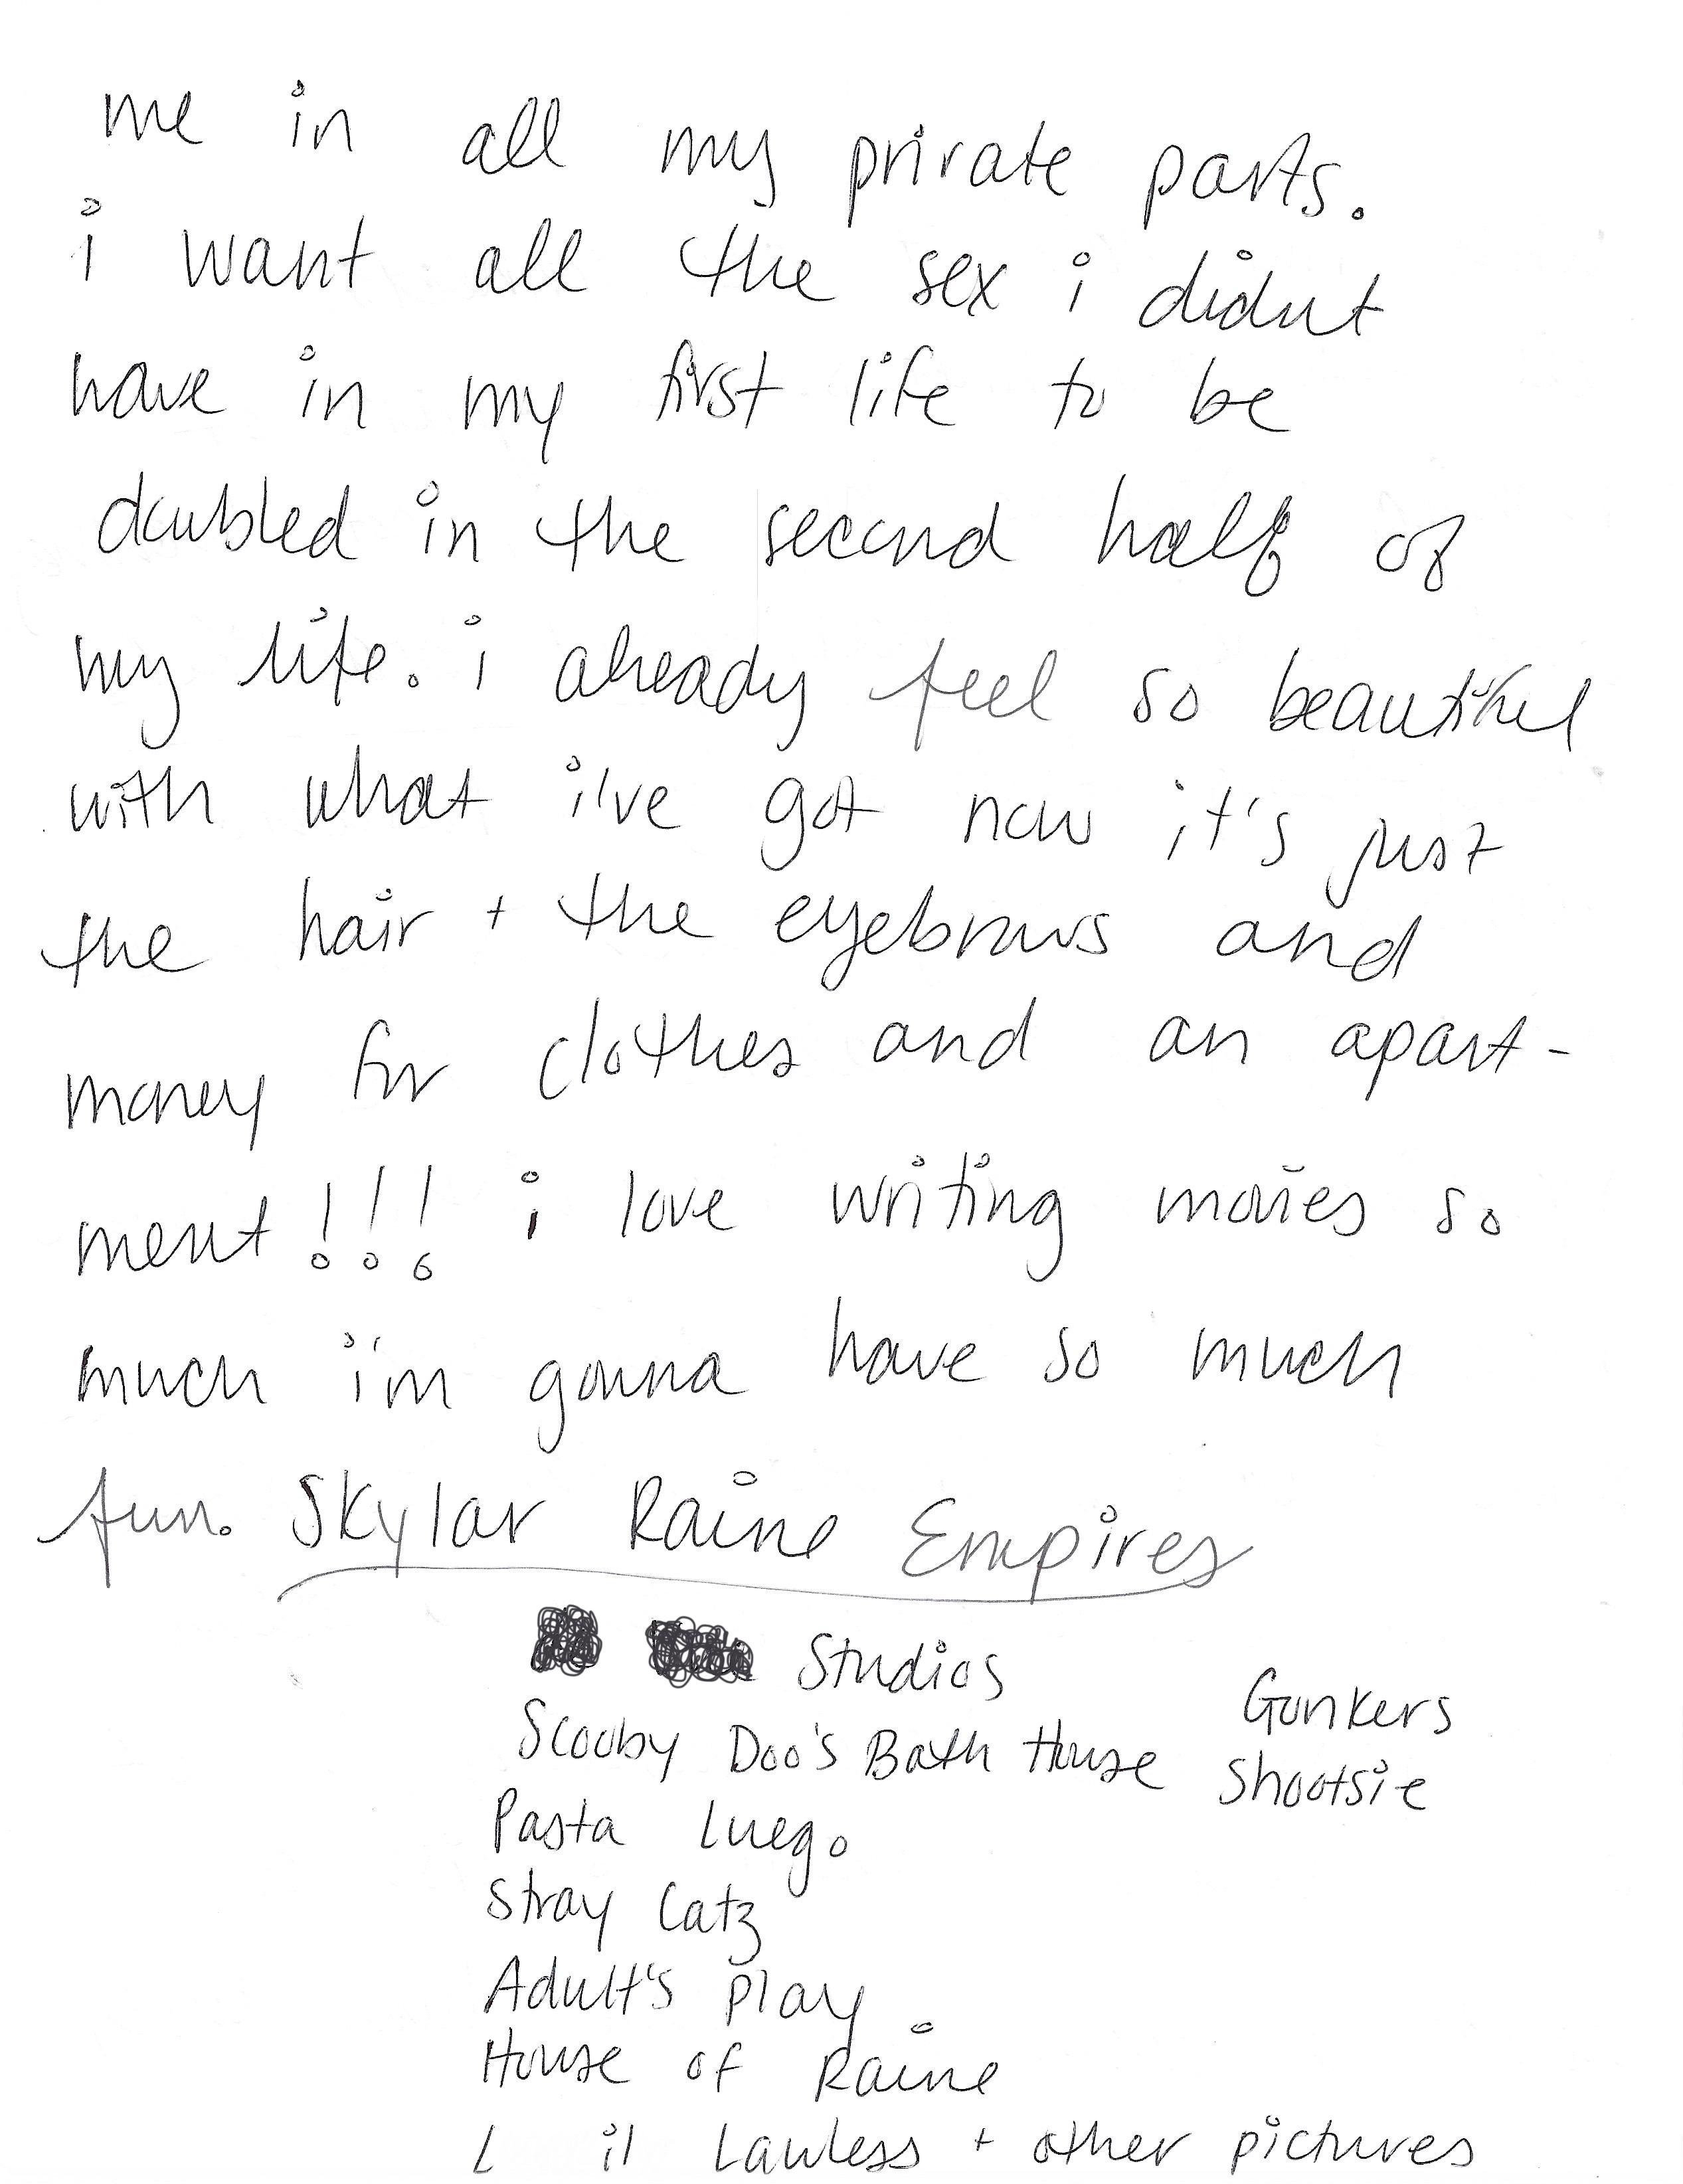 me in all my private parts.
i want all the sex i didnt
have in my first life to be
doubled in the second half of
my life. i already feel so beautiful
with what i've got now it's just
the hair + the eyebrows and
money for clothes and an apart-
ment!!! i love writing movies so
much i'm gonna have so much
fun. Skylar Raine Empires
Studios
Gonkers
Scooby Doo's Bath House Shootsie
Pasta Luego
Stray Catz
Adult's play
House of Raine
L il Lawless + other pictures